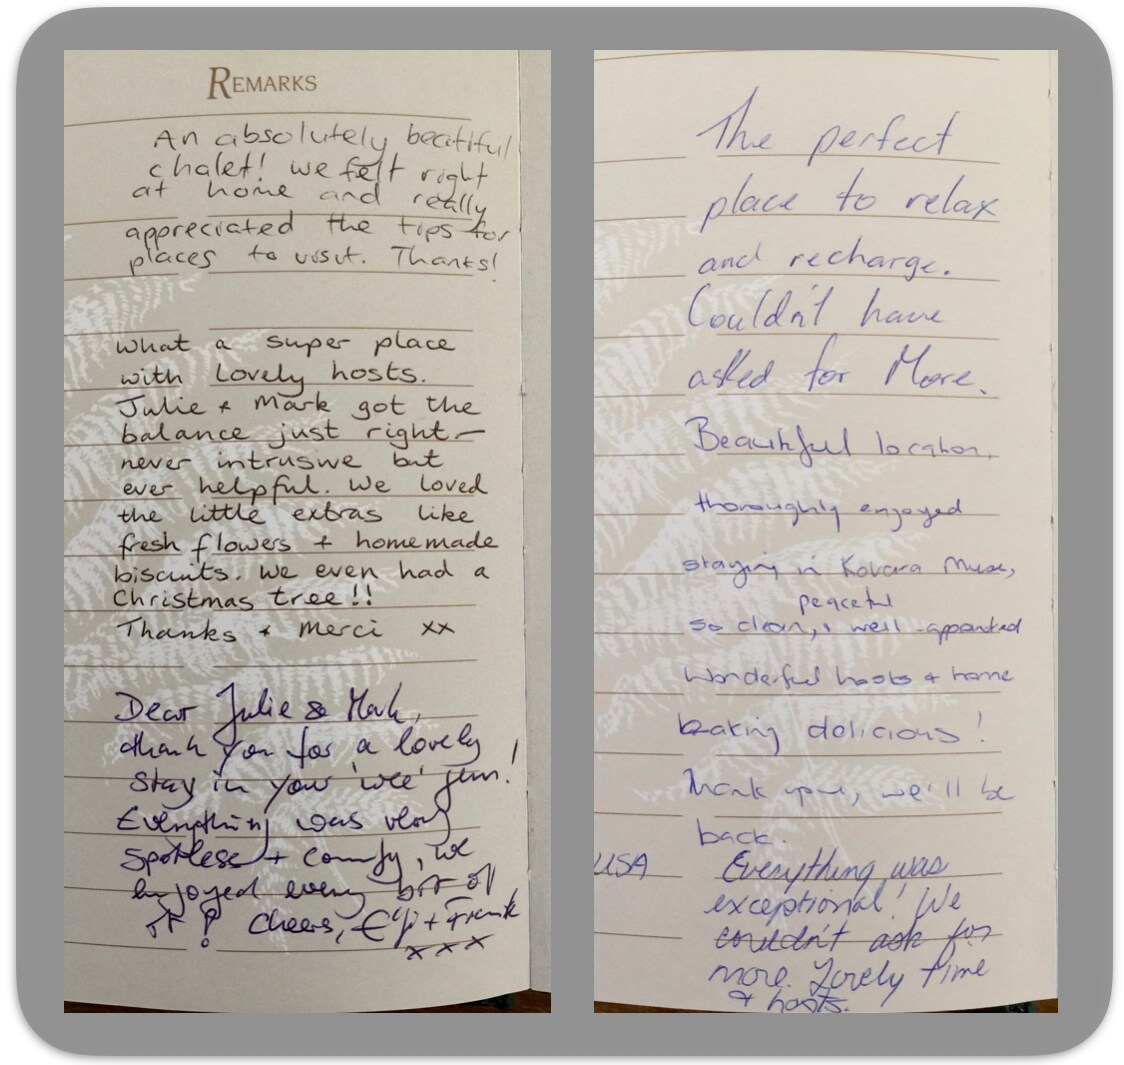 REMARKS
An absolutely beautiful
chalet! we felt right
at home and really
appreciated the tips for
places to visit. Thanks!
What a super place
with Lovely hosts.
Julie + Mark got the
balance just right –
never intrusive but
ever helpful. We loved
the little extras like
fresh flowers + homemade
biscuits. We even had a
Christmas tree!!
Thanks + Merci xx
Dear Julie & Mark,
thank you for a lovely
stay in your 'wee' gem!
Everything was very
spotless + comfy, we
enjoyed every bit of
it! Cheers, + Frank
x x x
The perfect
place to relax
and recharge.
Couldn't have
asked for More.
Beautiful location,
thoroughly enjoyed
staying in Muse,
peaceful
so clean, + well-appointed
Wonderful hosts + home
baking delicious!
Thank you, we'll be
back.
USA Everything was
exceptional! We
couldn't ask for
more. Lovely time
+ hosts.